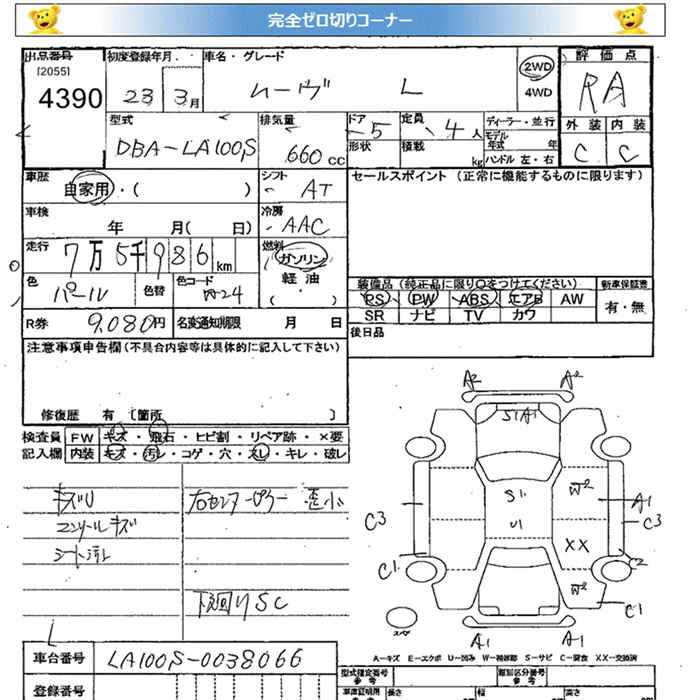 完全ゼロ切りコーナー
出品番号 初度登録年月 車名・グレード 評価点
[2055]
4390 23 3月 ムーヴ L 2WD 4WD RA
型式 排気量 ドア 5 定員 4人 ディーラー・並行 外装 内装
DBA-LA100S 660cc 形状 積載 kg モデル年式 年 C C
ハンドル 左・右
車歴 自家用・( ) シフト AT セールスポイント (正常に機能するものに限ります)
車検 年 月( 日) 冷房 AAC
走行 7万5千986km 燃料 ガソリン
軽油
・( )
色 パール 色替 色コード W-24
装備品 (純正品に限り○をつけてください) 新車保証書
PS PW ABS エアB AW 有・無
SR ナビ TV カワ
R券 9,080円 名変通知期限 月 日 後日品
注意事項申告欄(不具合内容等は具体的に記入して下さい)
修復歴 有 [箇所 ]
検査員 FW キズ・飛石・ヒビ割・リペア跡・×要
記入欄 内装 キズ・汚レ・コゲ・穴・スレ・キレ・破レ
キズU 右センターピラー 歪小
コンソールキズ
シート汚レ
下回りSC
A2 A2
S1 A1
S1 W2 A1
C3 U1 C3
XX
C1 C2
W2
C1
スペア
A1 A1
A-キズ E-エクボ U-凹み W-補修跡 S-サビ C-腐食 XX-交換済
車台番号 LA100S-0038066
型式指定番号 類別区分番号
参考 参考
登録番号 車庫証明用 長さ 幅 高さ